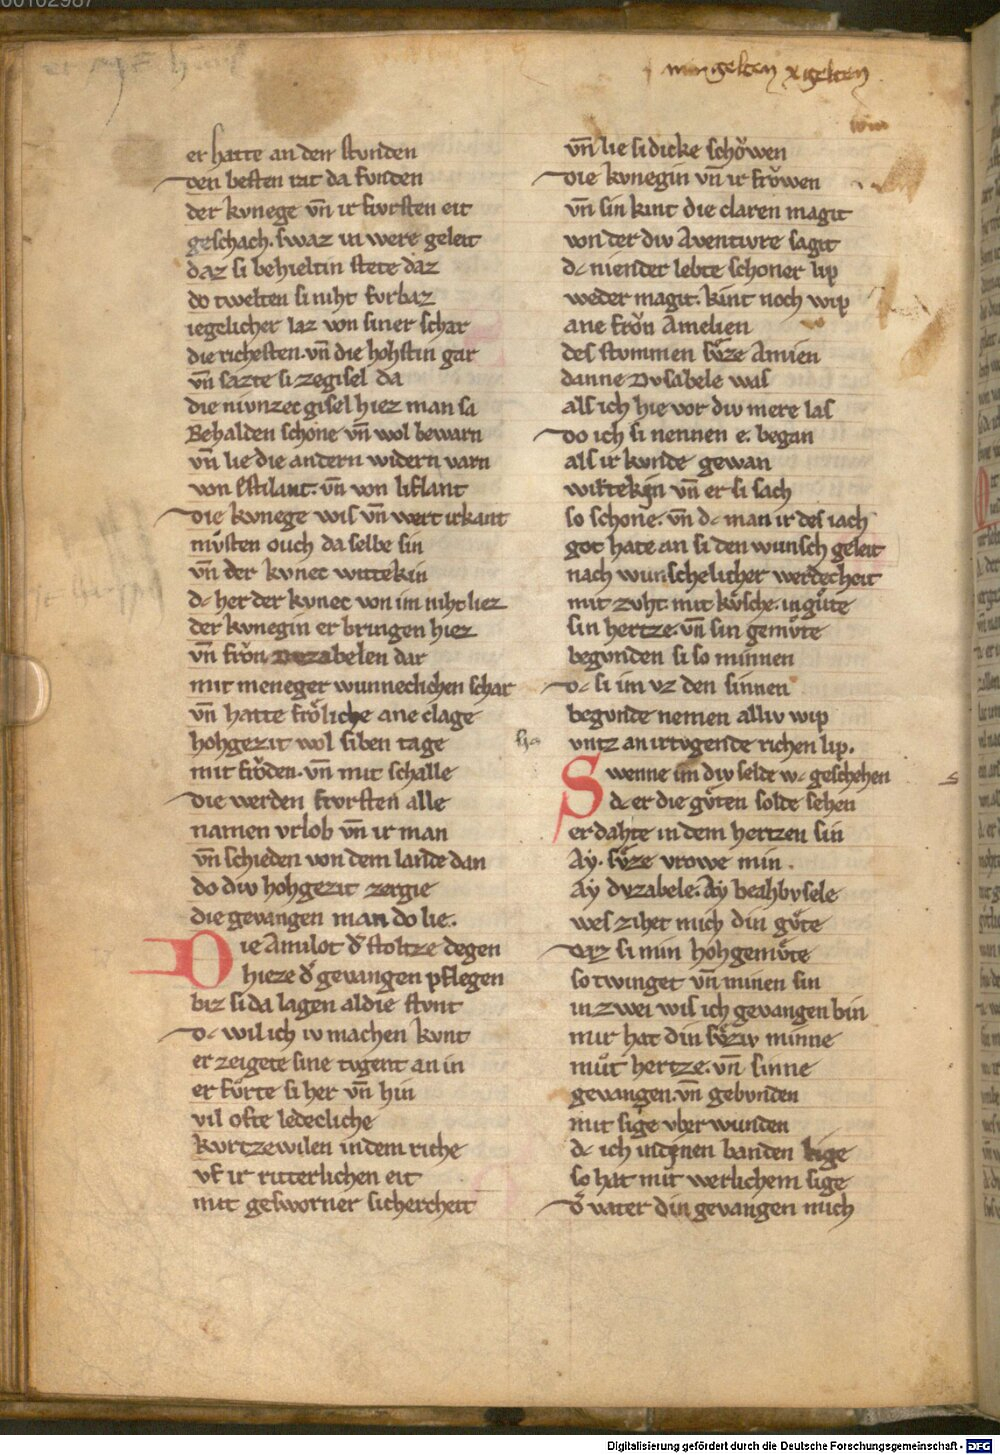 er hatte an den stunden
den besten rat da funden
der kvnege vn̄ ir fvrsten eit
geschach. swaz in were geleit
daz si behieltin stete daz
do twelten si niht fvrbaz
iegelicher laz von siner schar
die richesten. vn̄ die hohstin gar
vn̄ sazte si ze gisel da
die nivnzec gisel hiez man sa
Behalden schone vn̄ wol bewarn
vn̄ lie die andern widern varn
von Estilant. vn̄ von liflant
die kvnege wis vn̄ wert irkant
mvͦsten ouch da selbe sin
vn̄ der kvnec wittekin
dc her der kvnec von im niht liez
der kvnegin er bringen hiez
vn̄ froͮn Dvzabelen dar
mit meneger wunneclichen schar
vn̄ hatte froͤliche ane clage
hohgezit wol siben tage
mit froͤden. vn̄ mit schalle
die werden fvrsten alle
namen vrlob vn̄ ir man
vn̄ schieden von dem lande dan
do div hohgezit zergie
die gevangen man do lie.
Die Amilot dˢ stoltze degen
hieze dˢ gevangen pflegen
biz si da lagen al die stvnt
dc wil ich iv machen kvnt
er zeigete sine tvgent an in
er fvͦrte si her vn̄ hin
vil ofte ledecliche
kvrtzewilen in dem riche
vf ir ritterlichen eit
mit gesworner sicherheit
min gelten x gelten
vn̄ lie si dicke schoͮwen
die kvnegin vn̄ ir froͮwen
vn̄ sin kint die claren magit
von der div Aventivre sagit
dc niender lebte schoner lip
weder magit. kint noch wip
ane froͮn Amelien
des stvmmen svͤze Amien
danne Dvsabele was
als ich hie vor div mere las
do ich si nennen e. began
als ir kvnde gewan
wittekin vn̄ er si sach
so schone. vn̄ dc man ir des iach
got hate an si den wunsch geleit
nach wunschelicher werdecheit
mit zvht. mit kvͤsche. in gvͤte
sin hertze. vn̄ sin gemvͤte
begvnden si so minnen
dc si im vz den sinnen
begvnde nemen alliv wip
vntz an ir tvgende richen lip.
Swenne im div selde wc geschehen
dc er die gvͤten solde sehen
er dahte in dem hertzen sin
Ay. svͤze vrowe min.
Ay dvzabele. Ay beahbvsele
wes zihet mich din gvͤte
daz si min hohgemvͤte
so twinget vn̄ minen sin
in zwei wis ich gevangen bin
mir hat din svͤziv minne
mvͦt hertze. vn̄ sinne
gevangen. vn̄ gebvnden
mit sige vberwunden
dc ich in dinen banden lige
so hat mit werlichem sige
dˢ vater din gevangen mich
Digitalisierung gefördert durch die Deutsche Forschungsgemeinschaft - DFG